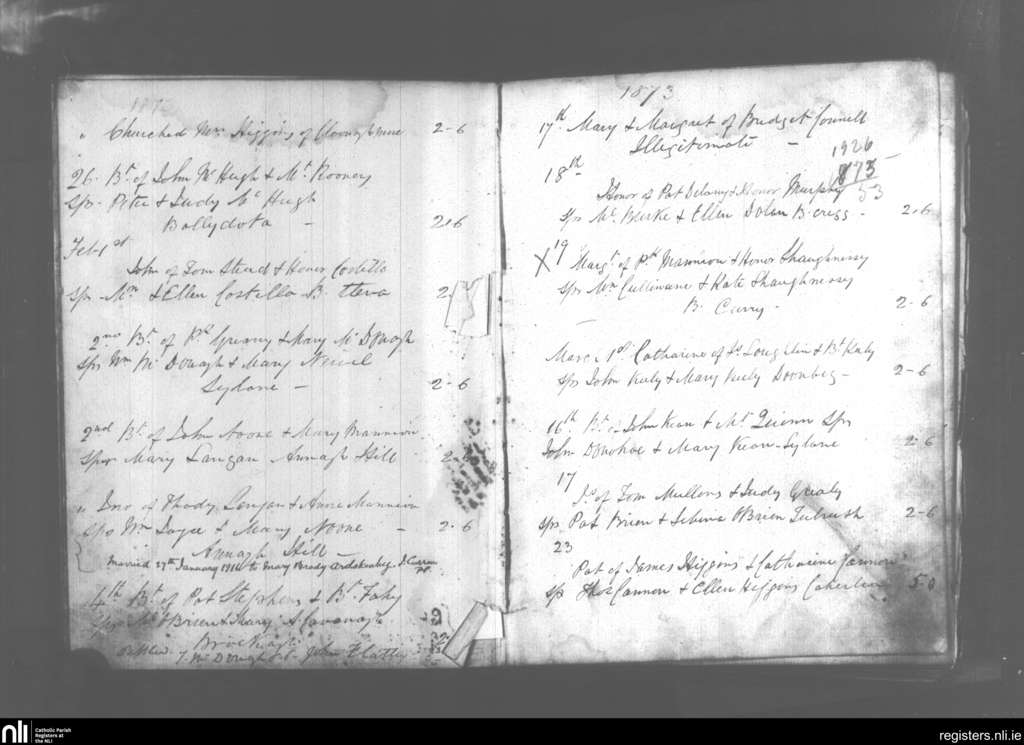 1873
" Churched Mrs Higgins of 2-6
26. Bt. of John McHugh & Mt. Rooney
Sps. Peter & Judy McHugh
Ballydota — 2-6
Feb 1st
John of Tom Stead & Honor Costello
Sps Mn & Ellen Costello B. 2
2nd Bt. of Pk & Mary McDonagh
Sps Wm McDonagh & Mary
Sylane — 2-6
2nd Bt. of John Noone & Mary Mannion
Sps Mary Langan Annagh Hill 2-6
" Jno of Thady Langan & Anne Mannion
Sps Wm Joyce & Mary Noone — 2-6
Annagh Hill —
Married 27th January 1914 to Mary Brady J. Curran
PP.
14th Bt. of Pat Stephens & Bt. Fahy
Sps O'Brien & Mary A. Cavanagh
1873
17th Mary & Margret of Bridget Connell
Illegitimate —
1926
18th 873
53
Honor of Pat Delany & Honor Murphy
Sps Mt. Burke & Ellen Dolan B. 2-6
X 19 Margt. of Pk Mannion & Honor Shaughnessy
Sps Mn Cullinane & Kate Shaughnessy
B. Curry. 2-6
March 1st Catharine of Loughlin & Bt. Kiely
Sps John Kiely & Mary Kiely Doonbeg — 2-6
16th Bt. of John Kean & Mt. Quinn Sps
John Donohoe & Mary Kean Sylane 2-6
17
of Tom Mullens & Judy Grealy
Sps Pat Brien & Sibina O'Brien 2-6
23
Pat of James Higgins & Catharine Cannon
Sps Thos Cannon & Ellen Higgins 5-0
nli
Catholic Parish
Registers at
the NLI
registers.nli.ie